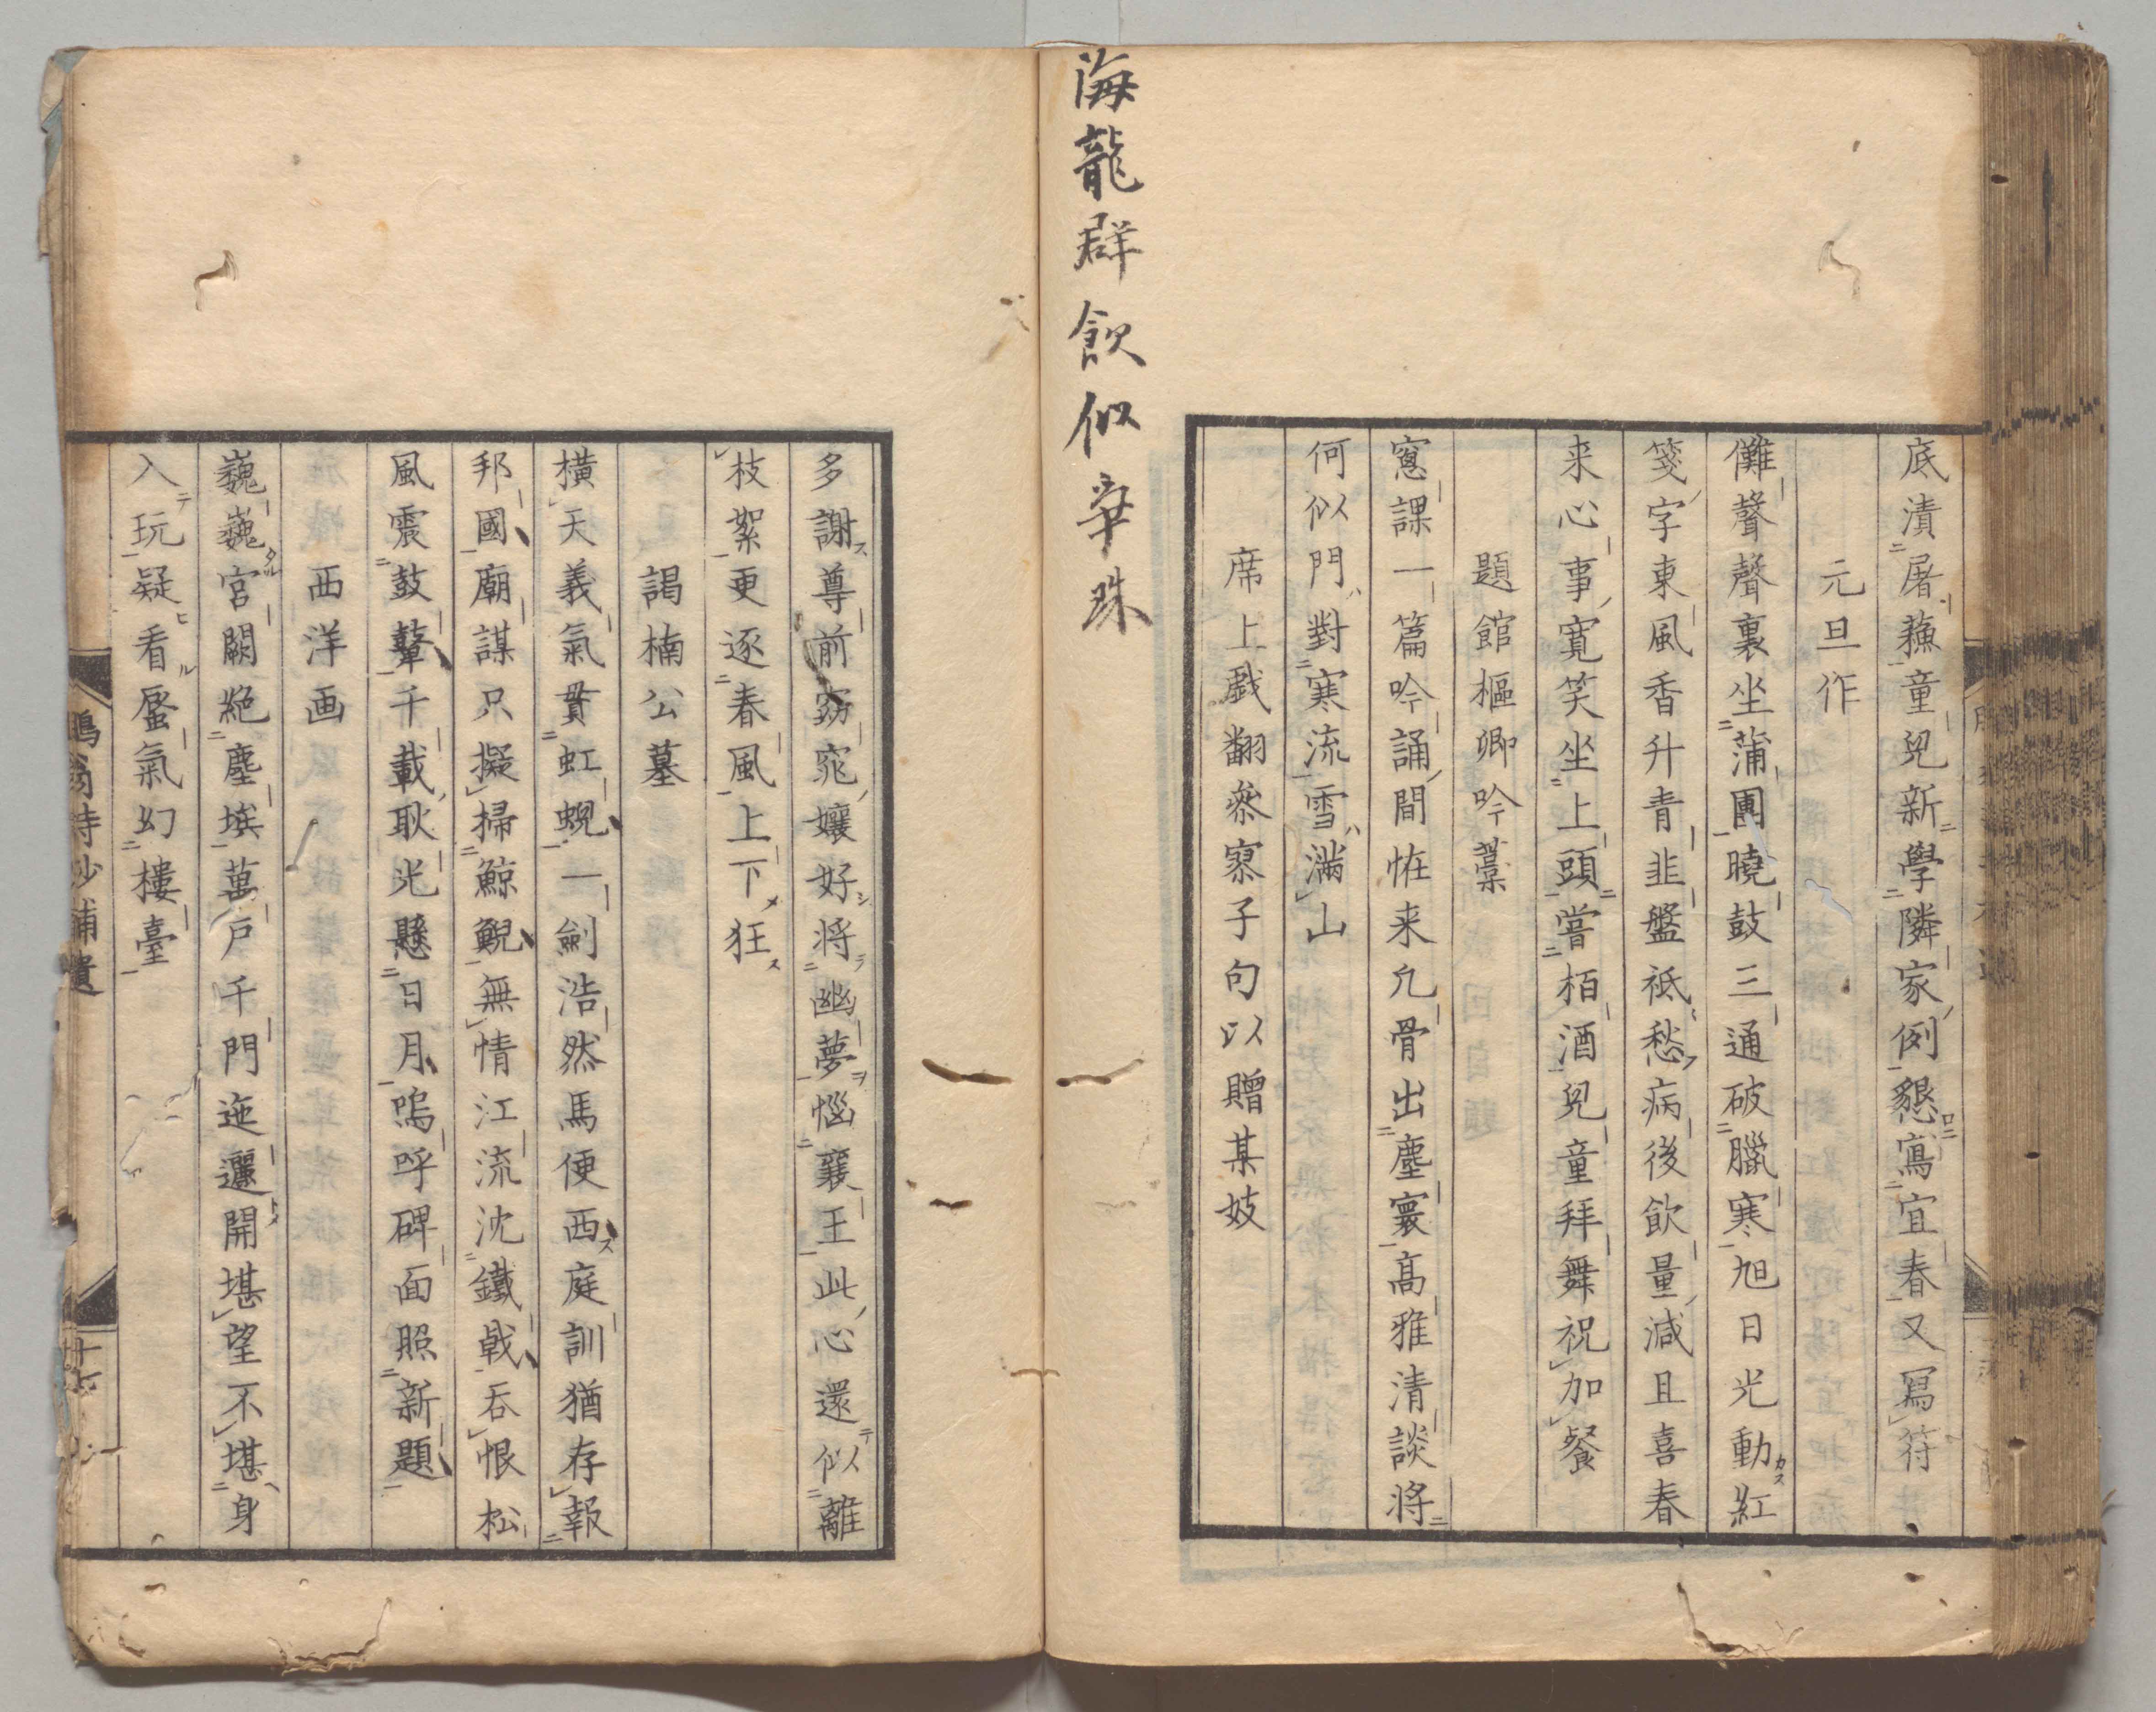 底漬屠蘓童兒新學隣家例懇寫宜春又寫符
元旦作
儺聲聲裏坐蒲團曉鼓三通破臘寒旭日光動紅
箋字東風香升青韭盤祗愁病後飲量減且喜春
来心事寛笑坐上頭嘗栢酒兒童拜舞祝加餐
題館樞卿吟藁
窻課一篇吟誦間恠来凢骨出塵寰高雅清談將
何似門對寒流雪滿山
席上戯翻叅寥子句以贈某妓
海龍群飲似辛珠
多謝尊前窈窕孃好將幽夢惱襄王此心還似離
枝絮更逐春風上下狂
謁楠公墓
橫天義氣貫虹蜺一劍浩然馬便西庭訓猶存報
邦國廟謀只擬掃鯨鯢無情江流沈鐵戟吞恨松
風震鼓鼙千載耿光懸日月嗚呼碑面照新題
西洋画
巍巍宮闕絶塵埃萬戸千門迤邐開堪望不堪身
入玩疑看蜃氣幻樓臺
鵬翁詩抄補遺
十七